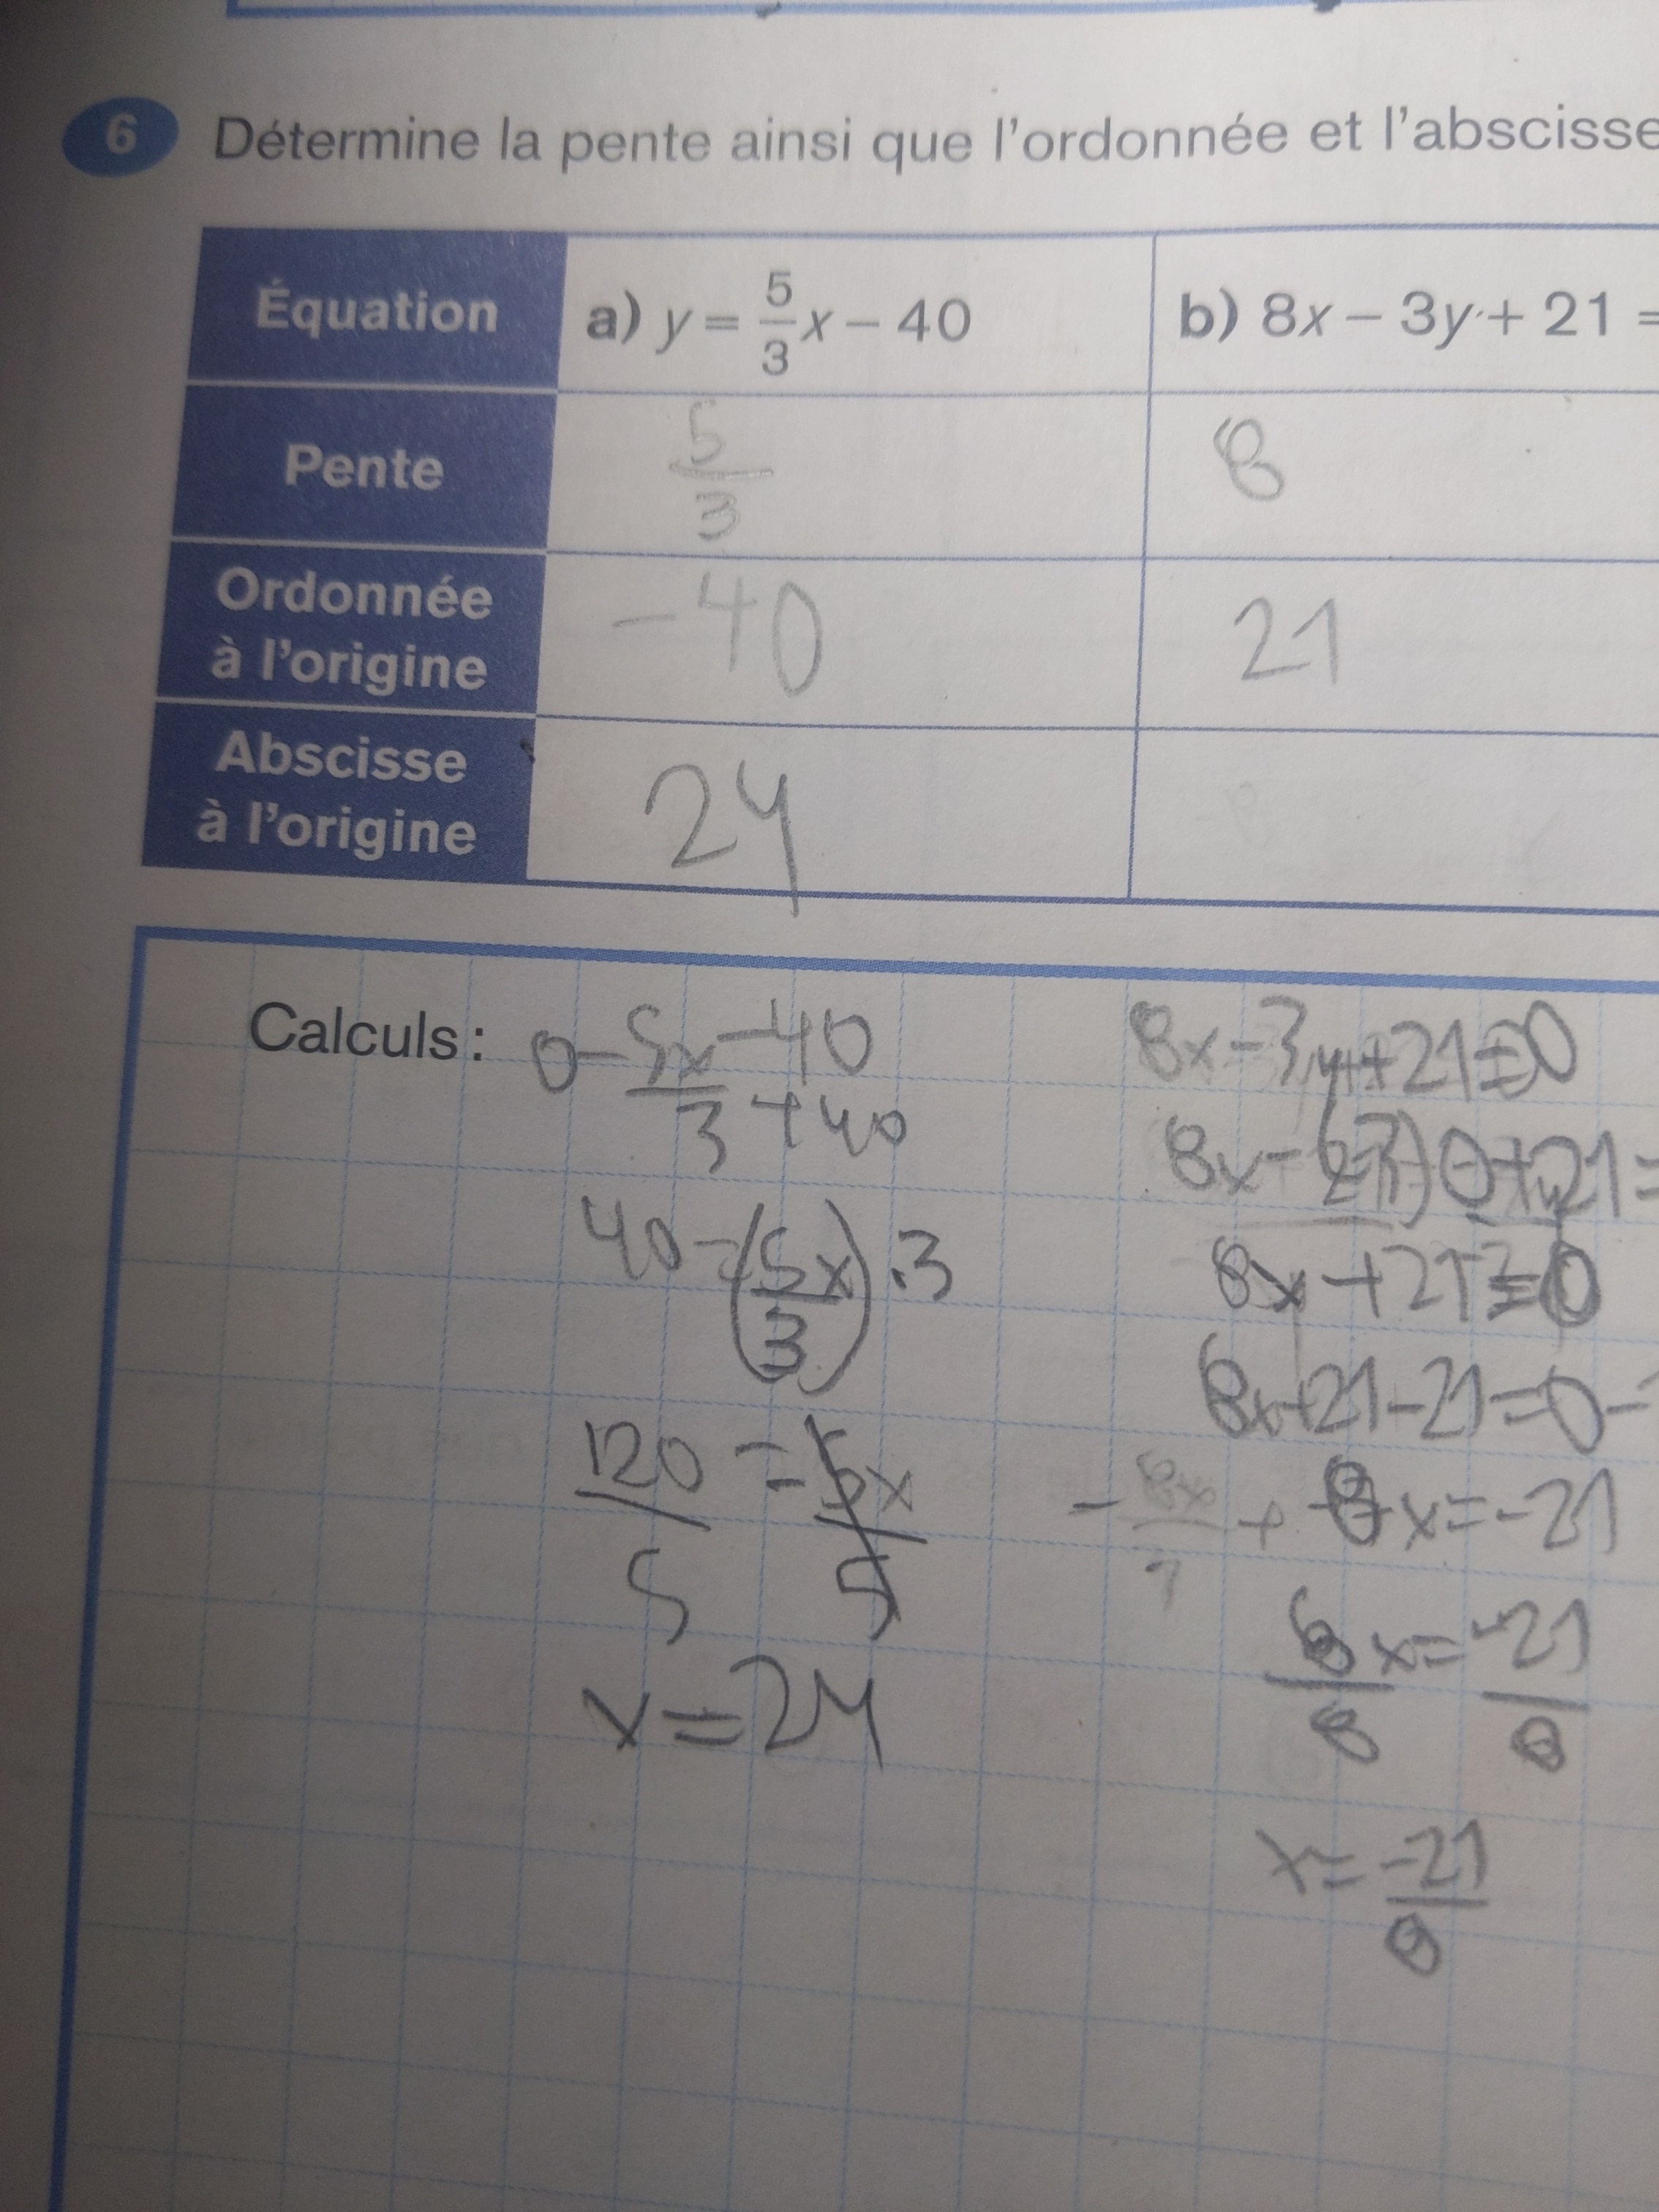 6 Détermine la pente ainsi que l'ordonnée et l'abscisse
Équation a) y = 5/3 x – 40 b) 8x – 3y + 21 =
Pente 5/3 8
Ordonnée à l'origine -40 21
Abscisse à l'origine 24
Calculs :
0 - 5x/3 - 40
+40
40 = (5x/3) · 3
120/5 = 5x/5
x = 24
8x - 3y + 21 = 0
8x + 21 = 0
8x + 21 - 21 = 0 -
8x = -21
8x/8 = -21/8
x = -21/8